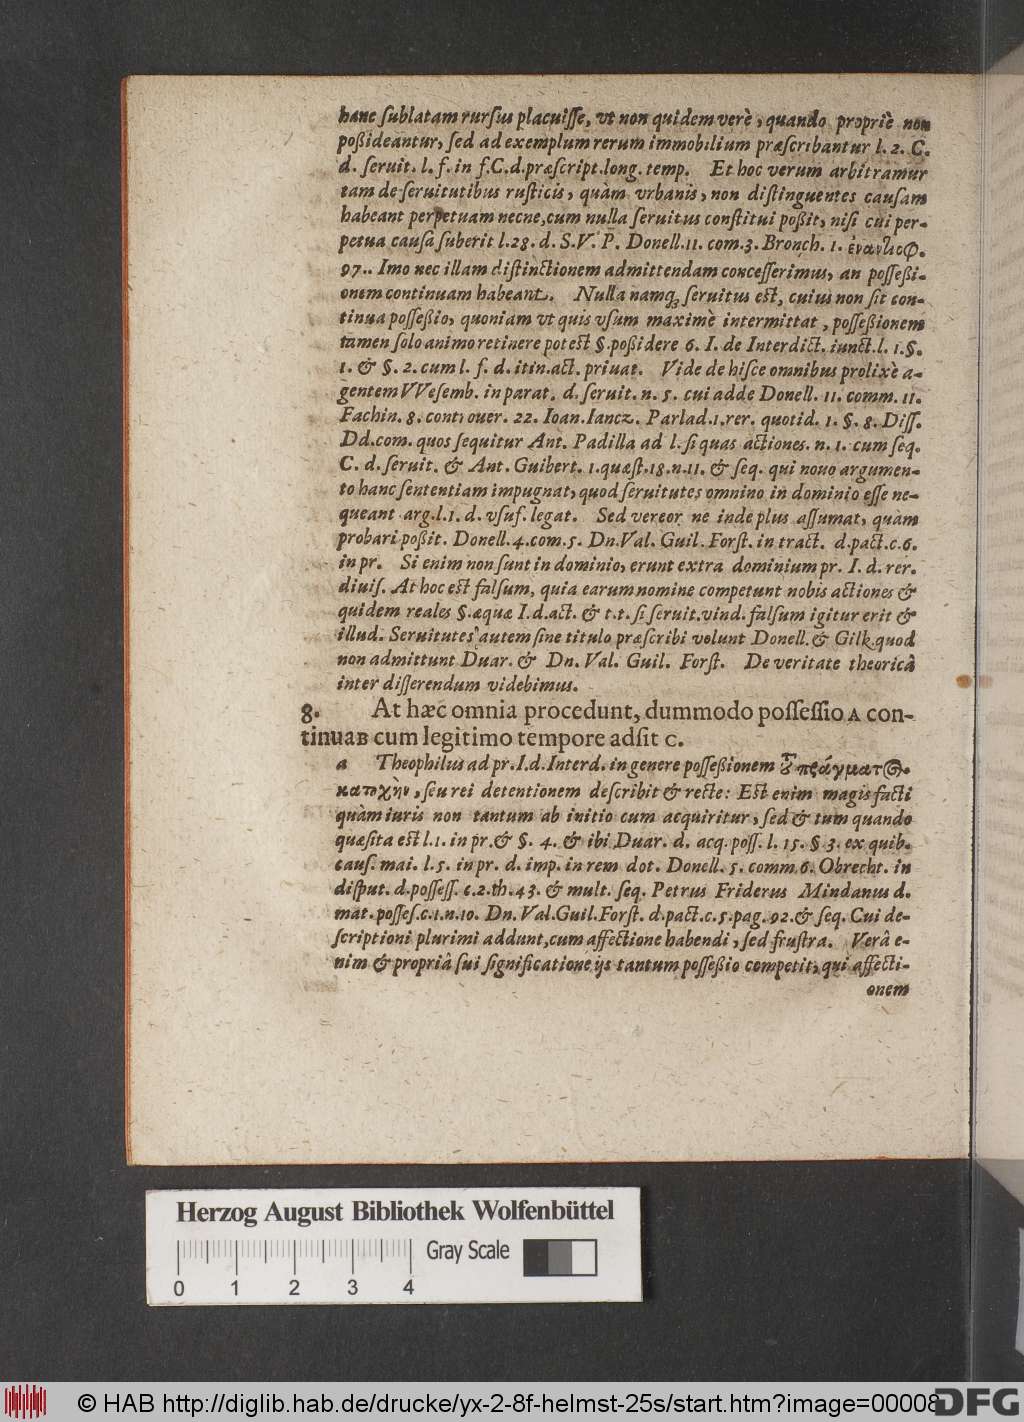 hanc sublatam rursus placuisse, vt non quidem verè, quando propriè non
poßideantur, sed ad exemplum rerum immobilium præscribantur l. 2. C.
d. seruit. l. f. in f. C. d. præscript. long. temp. Et hoc verum arbitramur
tam de seruitutibus rusticis, quàm vrbanis, non distinguentes causam
habeant perpetuam necne, cum nulla seruitus constitui poßit, nisi cui per-
petua causa suberit l. 28. d. S. V. P. Donell. 11. com. 3. Bronch. 1. ἐναντιοφ.
97.. Imo nec illam distinctionem admittendam concesserimus, an posseßi-
onem continuam habeant. Nulla namq; seruitus est, cuius non sit con-
tinua posseßio, quoniam vt quis vsum maximè intermittat, posseßionem
tamen solo animo retinere potest §. poßidere 6. I. de Interdict. iunct. l. 1. §.
1. & §. 2. cum l. f. d. itin. act. priuat. Vide de hisce omnibus prolixè a-
gentem VVesemb. in parat. d. seruit. n. 5. cui adde Donell. 11. comm. 11.
Fachin. 8. controuer. 22. Ioan. Iancz. Parlad. 1. rer. quotid. 1. §. 8. Diss.
Dd. com. quos sequitur Ant. Padilla ad l. si quas actiones. n. 1. cum seq.
C. d. seruit. & Ant. Guibert. 1. quæst. 18. n. 11. & seq. qui nouo argumen-
to hanc sententiam impugnat, quod seruitutes omnino in dominio esse ne-
queant arg. l. 1. d. vsuf. legat. Sed vereor ne inde plus assumat, quàm
probari poßit. Donell. 4. com. 5. Dn. Val. Guil. Forst. in tract. d. pact. c. 6.
in pr. Si enim non sunt in dominio, erunt extra dominium pr. I. d. rer.
diuis. At hoc est falsum, quia earum nomine competunt nobis actiones &
quidem reales §. æquæ I. d. act. & t. t. si seruit. vind. falsum igitur erit &
illud. Seruitutes autem sine titulo præscribi volunt Donell. & Gilk. quod
non admittunt Duar. & Dn. Val. Guil. Forst. De veritate theoricâ
inter disserendum videbimus.
8. At hæc omnia procedunt, dummodo possessio A con-
tinua B cum legitimo tempore adsit C.
a Theophilus ad pr. I. d. Interd. in genere posseßionem τ πράγματος
κατοχὴν, seu rei detentionem describit & recte: Est enim magis facti
quàm iuris non tantum ab initio cum acquiritur, sed & tum quando
quæsita est l. 1. in pr. & §. 4. & ibi Duar. d. acq. poss. l. 15. § 3. ex quib.
caus. mai. l. 5. in pr. d. imp. in rem dot. Donell. 5. comm. 6. Obrecht. in
disput. d. possess. c. 2. th. 43. & mult. seq. Petrus Friderus Mindanus d.
mat. posses. c. 1. n. 10. Dn. Val. Guil. Forst. d. pact. c. 5. pag. 92. & seq. Cui de-
scriptioni plurimi addunt, cum affectione habendi, sed frustra. Verâ e-
nim & propriâ sui significatione ijs tantum posseßio competit, qui affecti-
onem
Herzog August Bibliothek Wolfenbüttel
Gray Scale
0 1 2 3 4
© HAB http://diglib.hab.de/drucke/yx-2-8f-helmst-25s/start.htm?image=00008
DFG